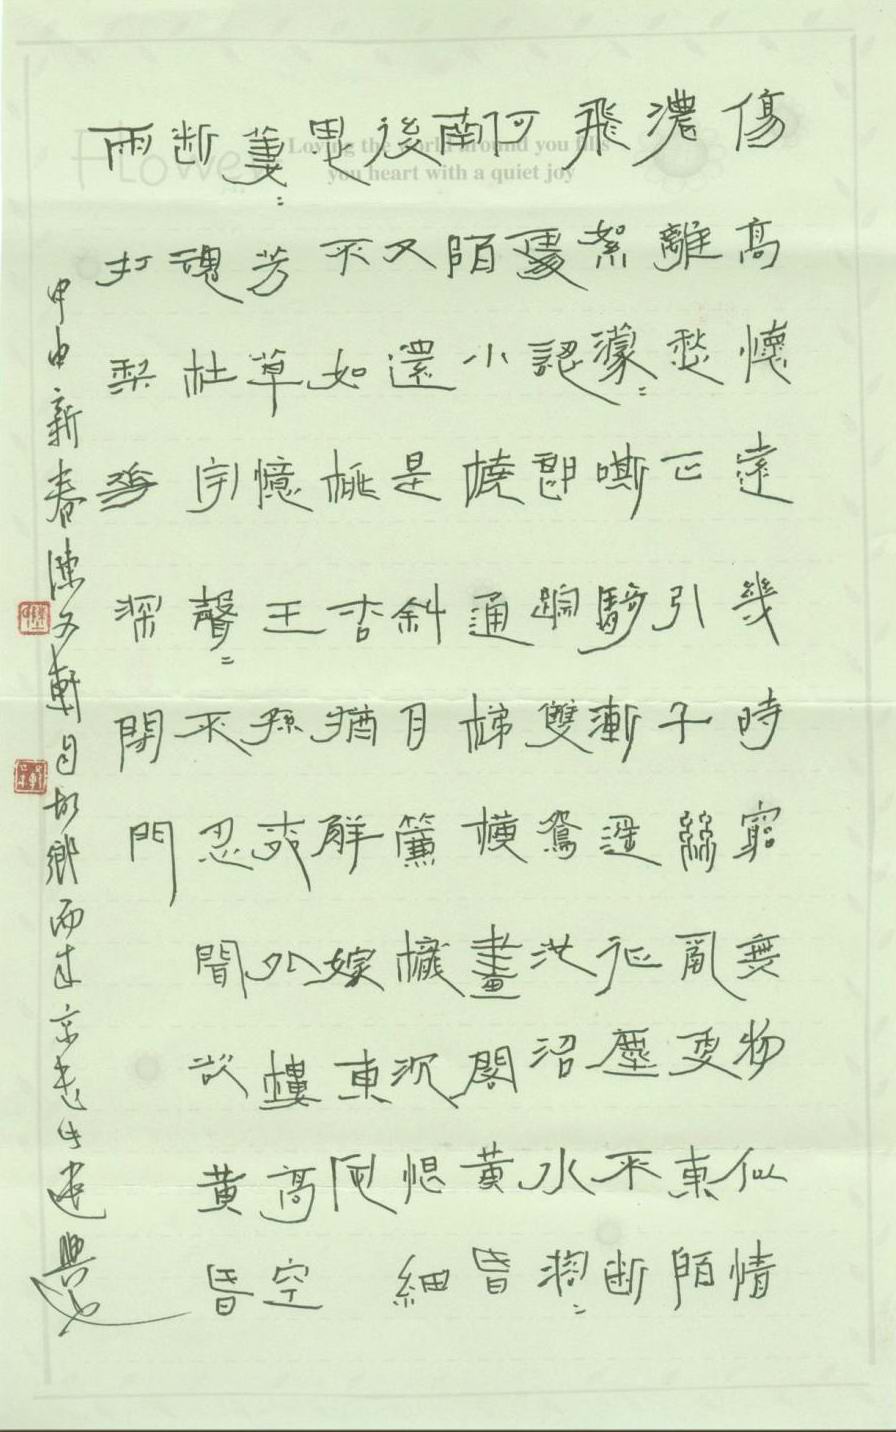 傷高懷遠幾時窮無物似情
濃離愁正引千絲亂更東陌
飛絮濛〻嘶騎漸遥征塵不断
何處認郎蹤雙鴛池沼水溶〻
南陌小橈通梯橫畫閣黃昏
後又還是斜月簾櫳沉恨細
思不如桃杏猶解嫁東風
萋〻芳草憶王孫柳外樓高空
断魂杜宇聲〻不忍聞欲黃昏
雨打梨花深閉門
甲申新春陳文軒自故鄉
Flower
Loving the world around you fills
you heart with a quiet joy